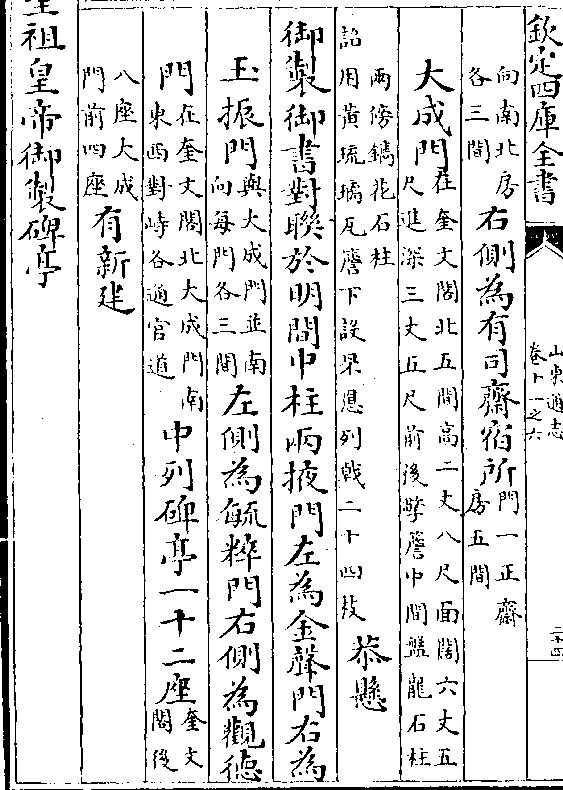 欽定四庫全書
山東通志
卷十一之六
二十四
向南北房
各三間
右側為有司齋宿所
門一正齋
房五間
大成門
在奎文閣北五間高二丈八尺面闊六丈五
尺進深三丈五尺前後擎簷中間盤龍石柱
兩傍鐫花石柱
詔用黄琉璃瓦簷下設罘罳列戟二十四枝
恭懸
御製御書對聯於明間中柱兩掖門左為金聲門右為
玉振門
與大成門並南
向每門各三間
左側為毓粹門右側為觀德
門
在奎文閣北大成門南
東西對峙各通官道
中列碑亭一十二座
奎文
閣後
八座大成
門前四座
有新建
祖皇帝御製碑亭